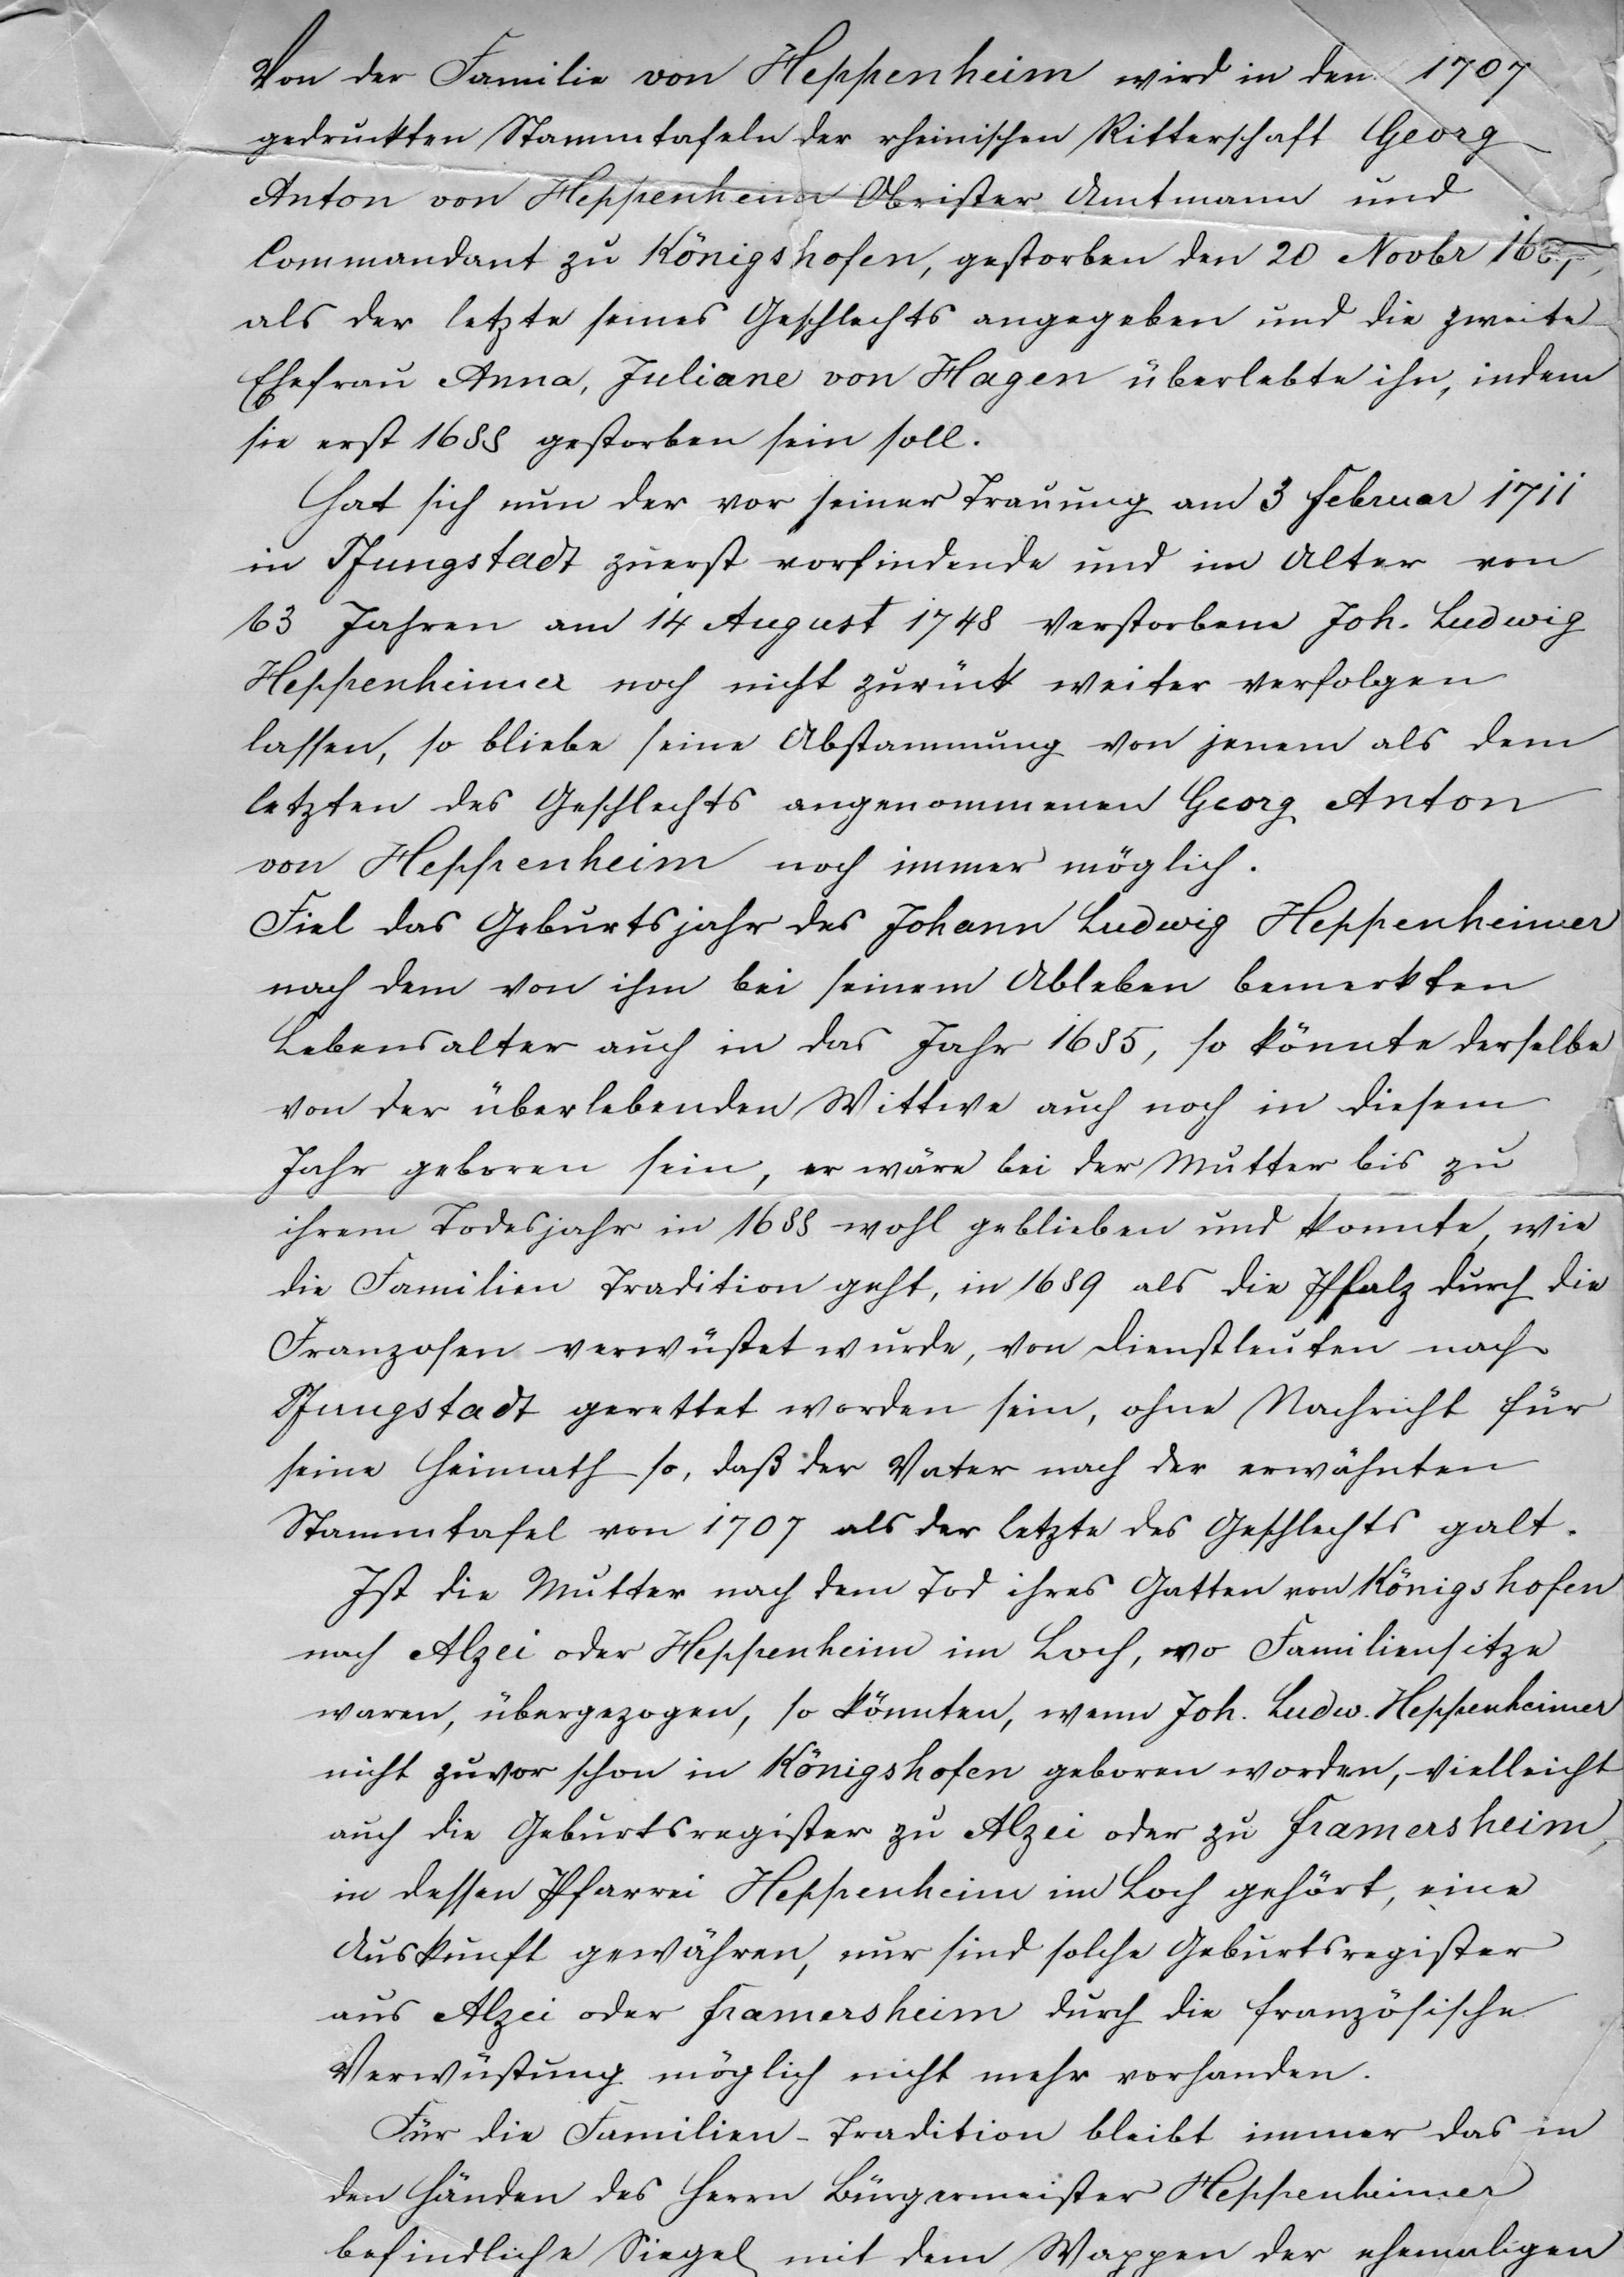 Von der Familie von Heppenheim wird in den 1707
gedruckten Stammtafeln der rheinischen Ritterschaft Georg
Anton von Heppenheim Obrister Amtmann und
Commandant zu Königshofen, gestorben den 20 Novbr
als der letzte seines Geschlechts angegeben und die zweite
Ehefrau Anna, Juliane von Hagen überlebte ihn, indem
sie erst 1688 gestorben sein soll.
Hat sich nun der vor seiner Trauung am 3 Februar 1711
in Pfungstadt zuerst vorfindende und im Alter von
63 Jahren am 14 August 1748 verstorbene Joh. Ludwig
Heppenheimer noch nicht zurück weiter verfolgen
lassen, so bliebe seine Abstammung von jenem als dem
letzten des Geschlechts angenommenen Georg Anton
von Heppenheim noch immer möglich.
Fiel das Geburtsjahr des Johann Ludwig Heppenheimer
nach dem von ihm bei seinem Ableben bemerkten
Lebensalter auch in das Jahr 1685, so könnte derselbe
von der überlebenden Wittwe auch noch in diesem
Jahr geboren sein, er wäre bei der Mutter bis zu
ihrem Todesjahr in 1688 wohl geblieben und konnte, wie
die Familien Tradition geht, in 1689 als die Pfalz durch die
Franzosen verwüstet wurde, von Dienstleuten nach
Pfungstadt gerettet worden sein, ohne Nachricht für
seine Heimath so, daß der Vater nach der erwähnten
Stammtafel von 1707 als der letzte des Geschlechts galt.
Ist die Mutter nach dem Tod ihres Gatten von Königshofen
nach Alzei oder Heppenheim im Loch, wo Familiensitze
waren, übergezogen, so könnten, wenn Joh. Ludw. Heppenheimer
nicht zuvor schon in Königshofen geboren worden, vielleicht
auch die Geburtsregister zu Alzei oder zu Framersheim,
in dessen Pfarrei Heppenheim im Loch gehört, eine
Auskunft gewähren, nur sind solche Geburtsregister
aus Alzei oder Framersheim durch die französische
Verwüstung möglich nicht mehr vorhanden.
Für die Familien-Tradition bleibt immer das in
den Händen des Herrn Bürgermeister Heppenheimer
befindliche Siegel mit dem Wappen der ehemaligen